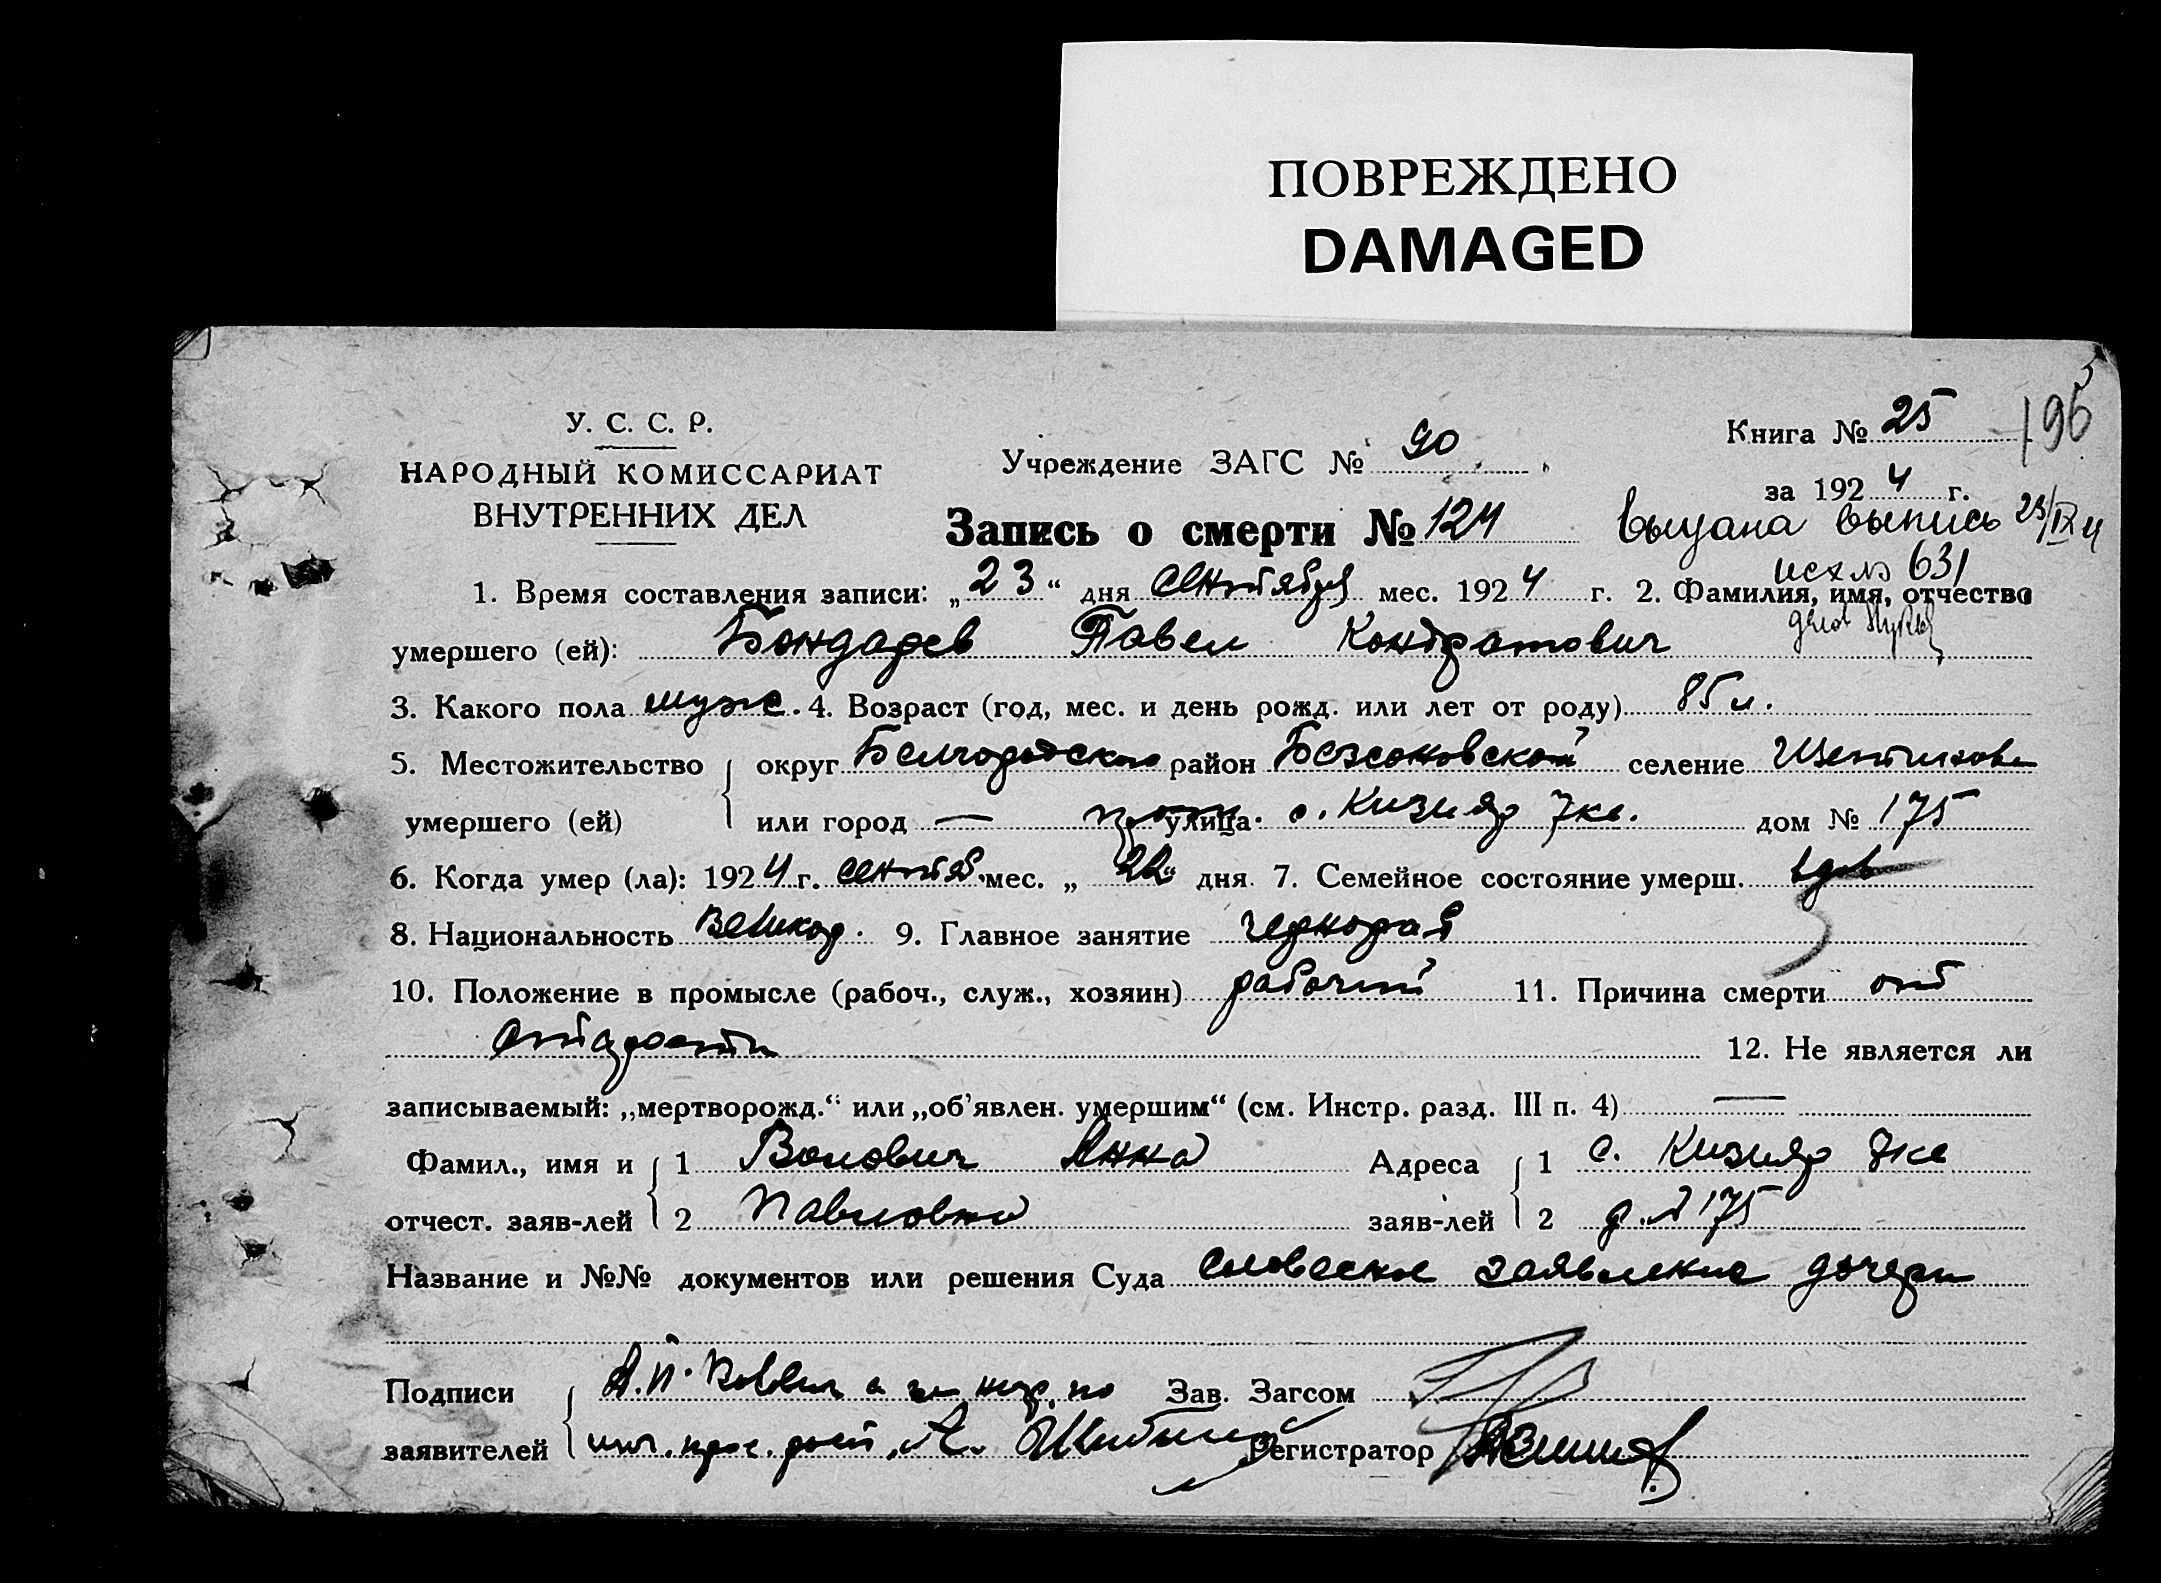 ПОВРЕЖДЕНО
DAMAGED
У. С. С. Р.
НАРОДНЫЙ КОМИССАРИАТ
ВНУТРЕННИХ ДЕЛ
Учреждение ЗАГС № 90
Книга № 25 196
за 1924 г.
Запись о смерти № 124 выдана выпись 23/IX 24
исх № 631
1. Время составления записи: „23“ дня сентября мес. 1924 г. 2. Фамилия, имя, отчество
умершего (ей): Бондарев Павел Кондратович
3. Какого пола муж. 4. Возраст (год, мес. и день рожд. или лет от роду) 85 л.
5. Местожительство округ Белгородского район Безсоновской селение
умершего (ей) или город — улица с. Кизияр дом № 175
6. Когда умер (ла): 1924 г. сентяб. мес. „22“ дня. 7. Семейное состояние умерш. вдов
8. Национальность Великор. 9. Главное занятие чернораб
10. Положение в промысле (рабоч., служ., хозяин) рабочий 11. Причина смерти от
старости 12. Не является ли
записываемый: „мертворожд.“ или „об’явлен. умершим“ (см. Инстр. разд. III п. 4) —
Фамил., имя и 1 Волович Анна Адреса 1 с. Кизияр
отчест. заяв-лей 2 Павловна заяв-лей 2 д. № 175
Название и №№ документов или решения Суда словесное заявление дочери
Подписи А. П. Зав. Загсом
заявителей Регистратор